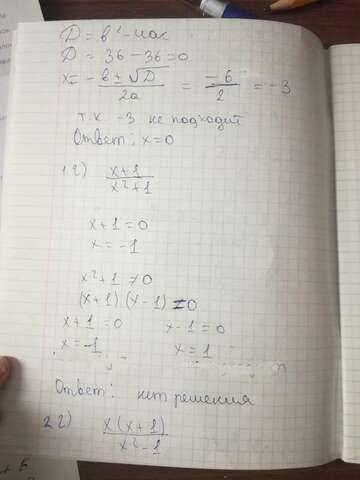 D = b² - 4ac
D = 36 - 36 = 0
x = - b ± √D / 2a = -6 / 2 = -3
т.к -3 не подходит
Ответ: x = 0
1 2) x+1 / x²+1
x+1 = 0
x = -1
x²+1 ≠ 0
(x+1) (x-1) ≠ 0
x+1 = 0 x-1 = 0
x = -1 x = 1
Ответ: нет решения
2 2) x(x+1) / x²-1